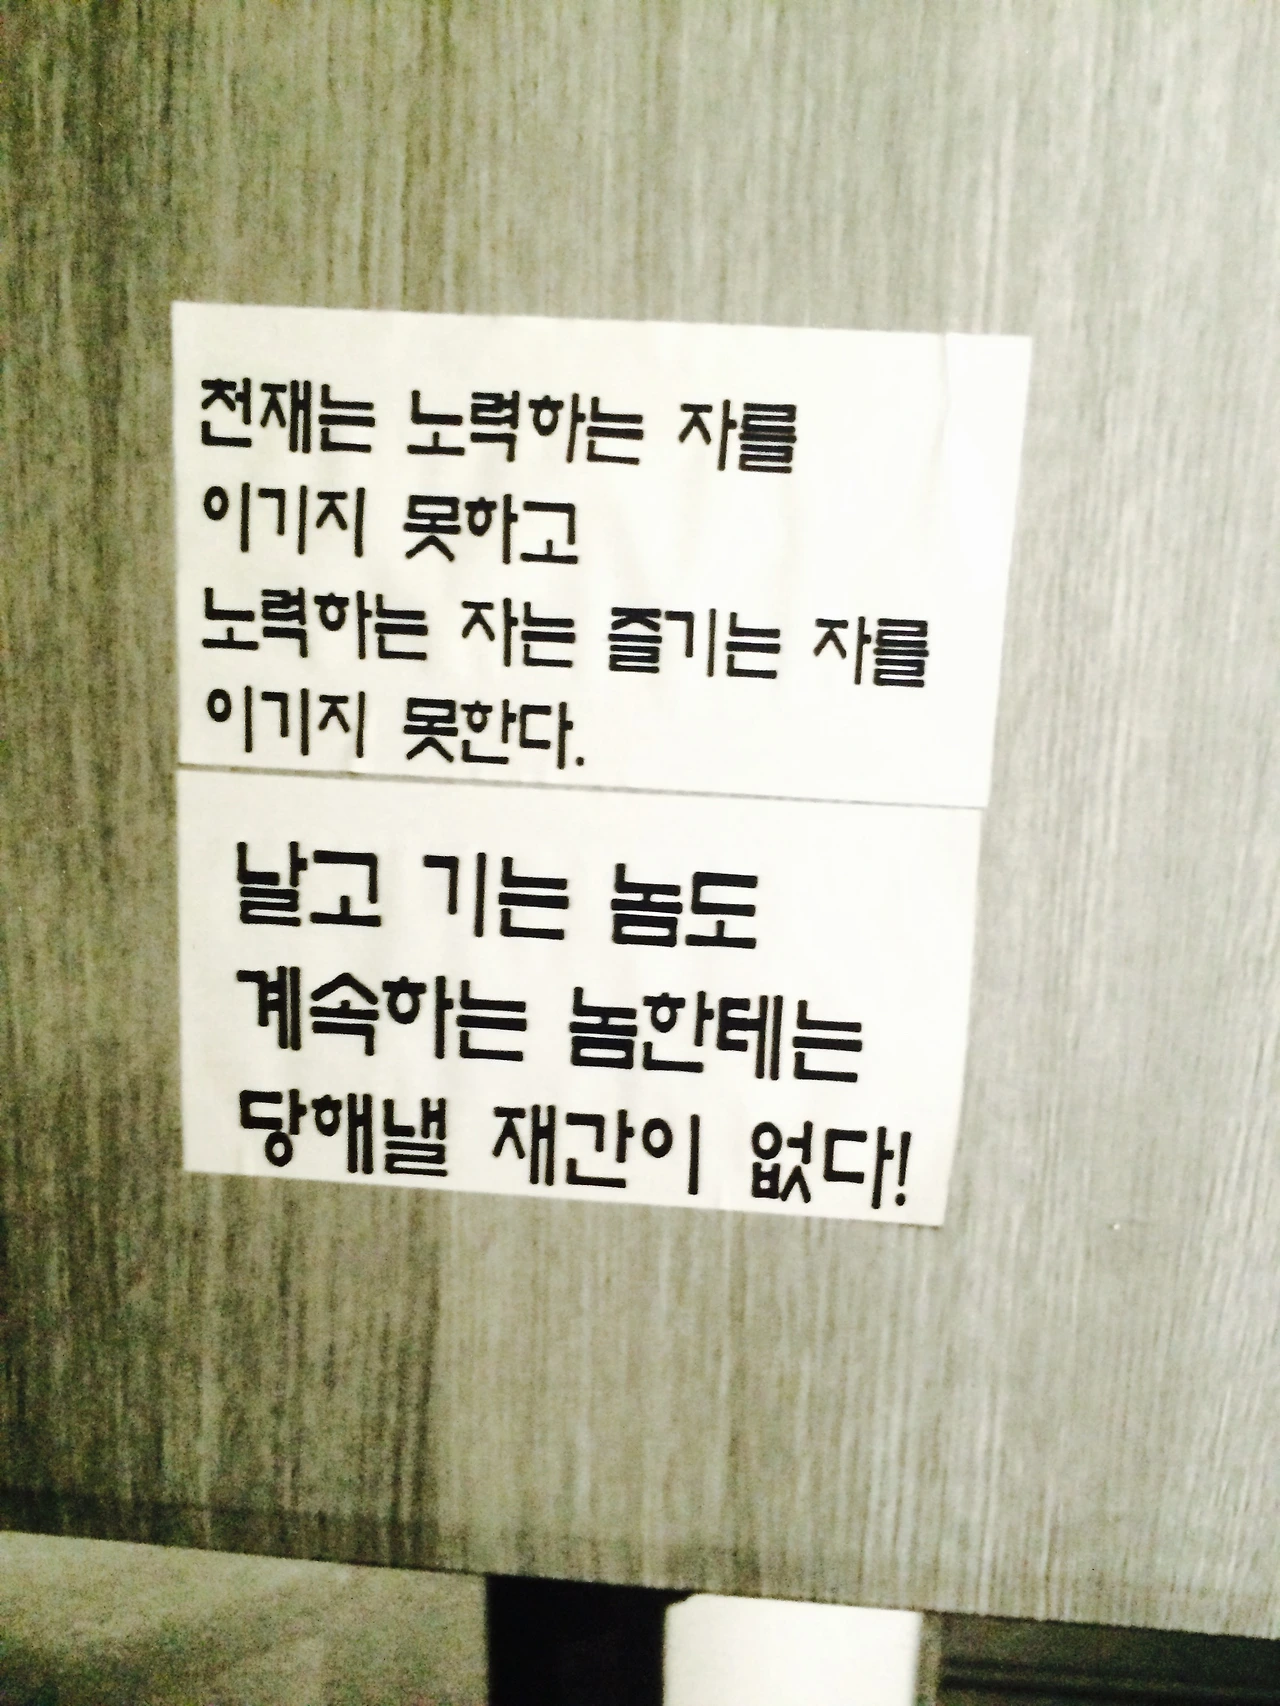 천재는 노력하는 자를
이기지 못하고
노력하는 자는 즐기는 자를
이기지 못한다.
날고 기는 놈도
계속하는 놈한테는
당해낼 재간이 없다!